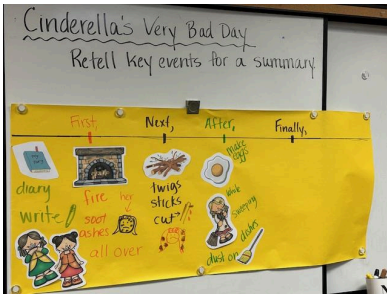 Cinderella's Very Bad Day
Retell key events for a summary
First,
Next,
After,
Finally,
diary
write
fire
soot
ashes
all over
twigs
sticks
cut
make
eggs
sweeping
dishes
dust on